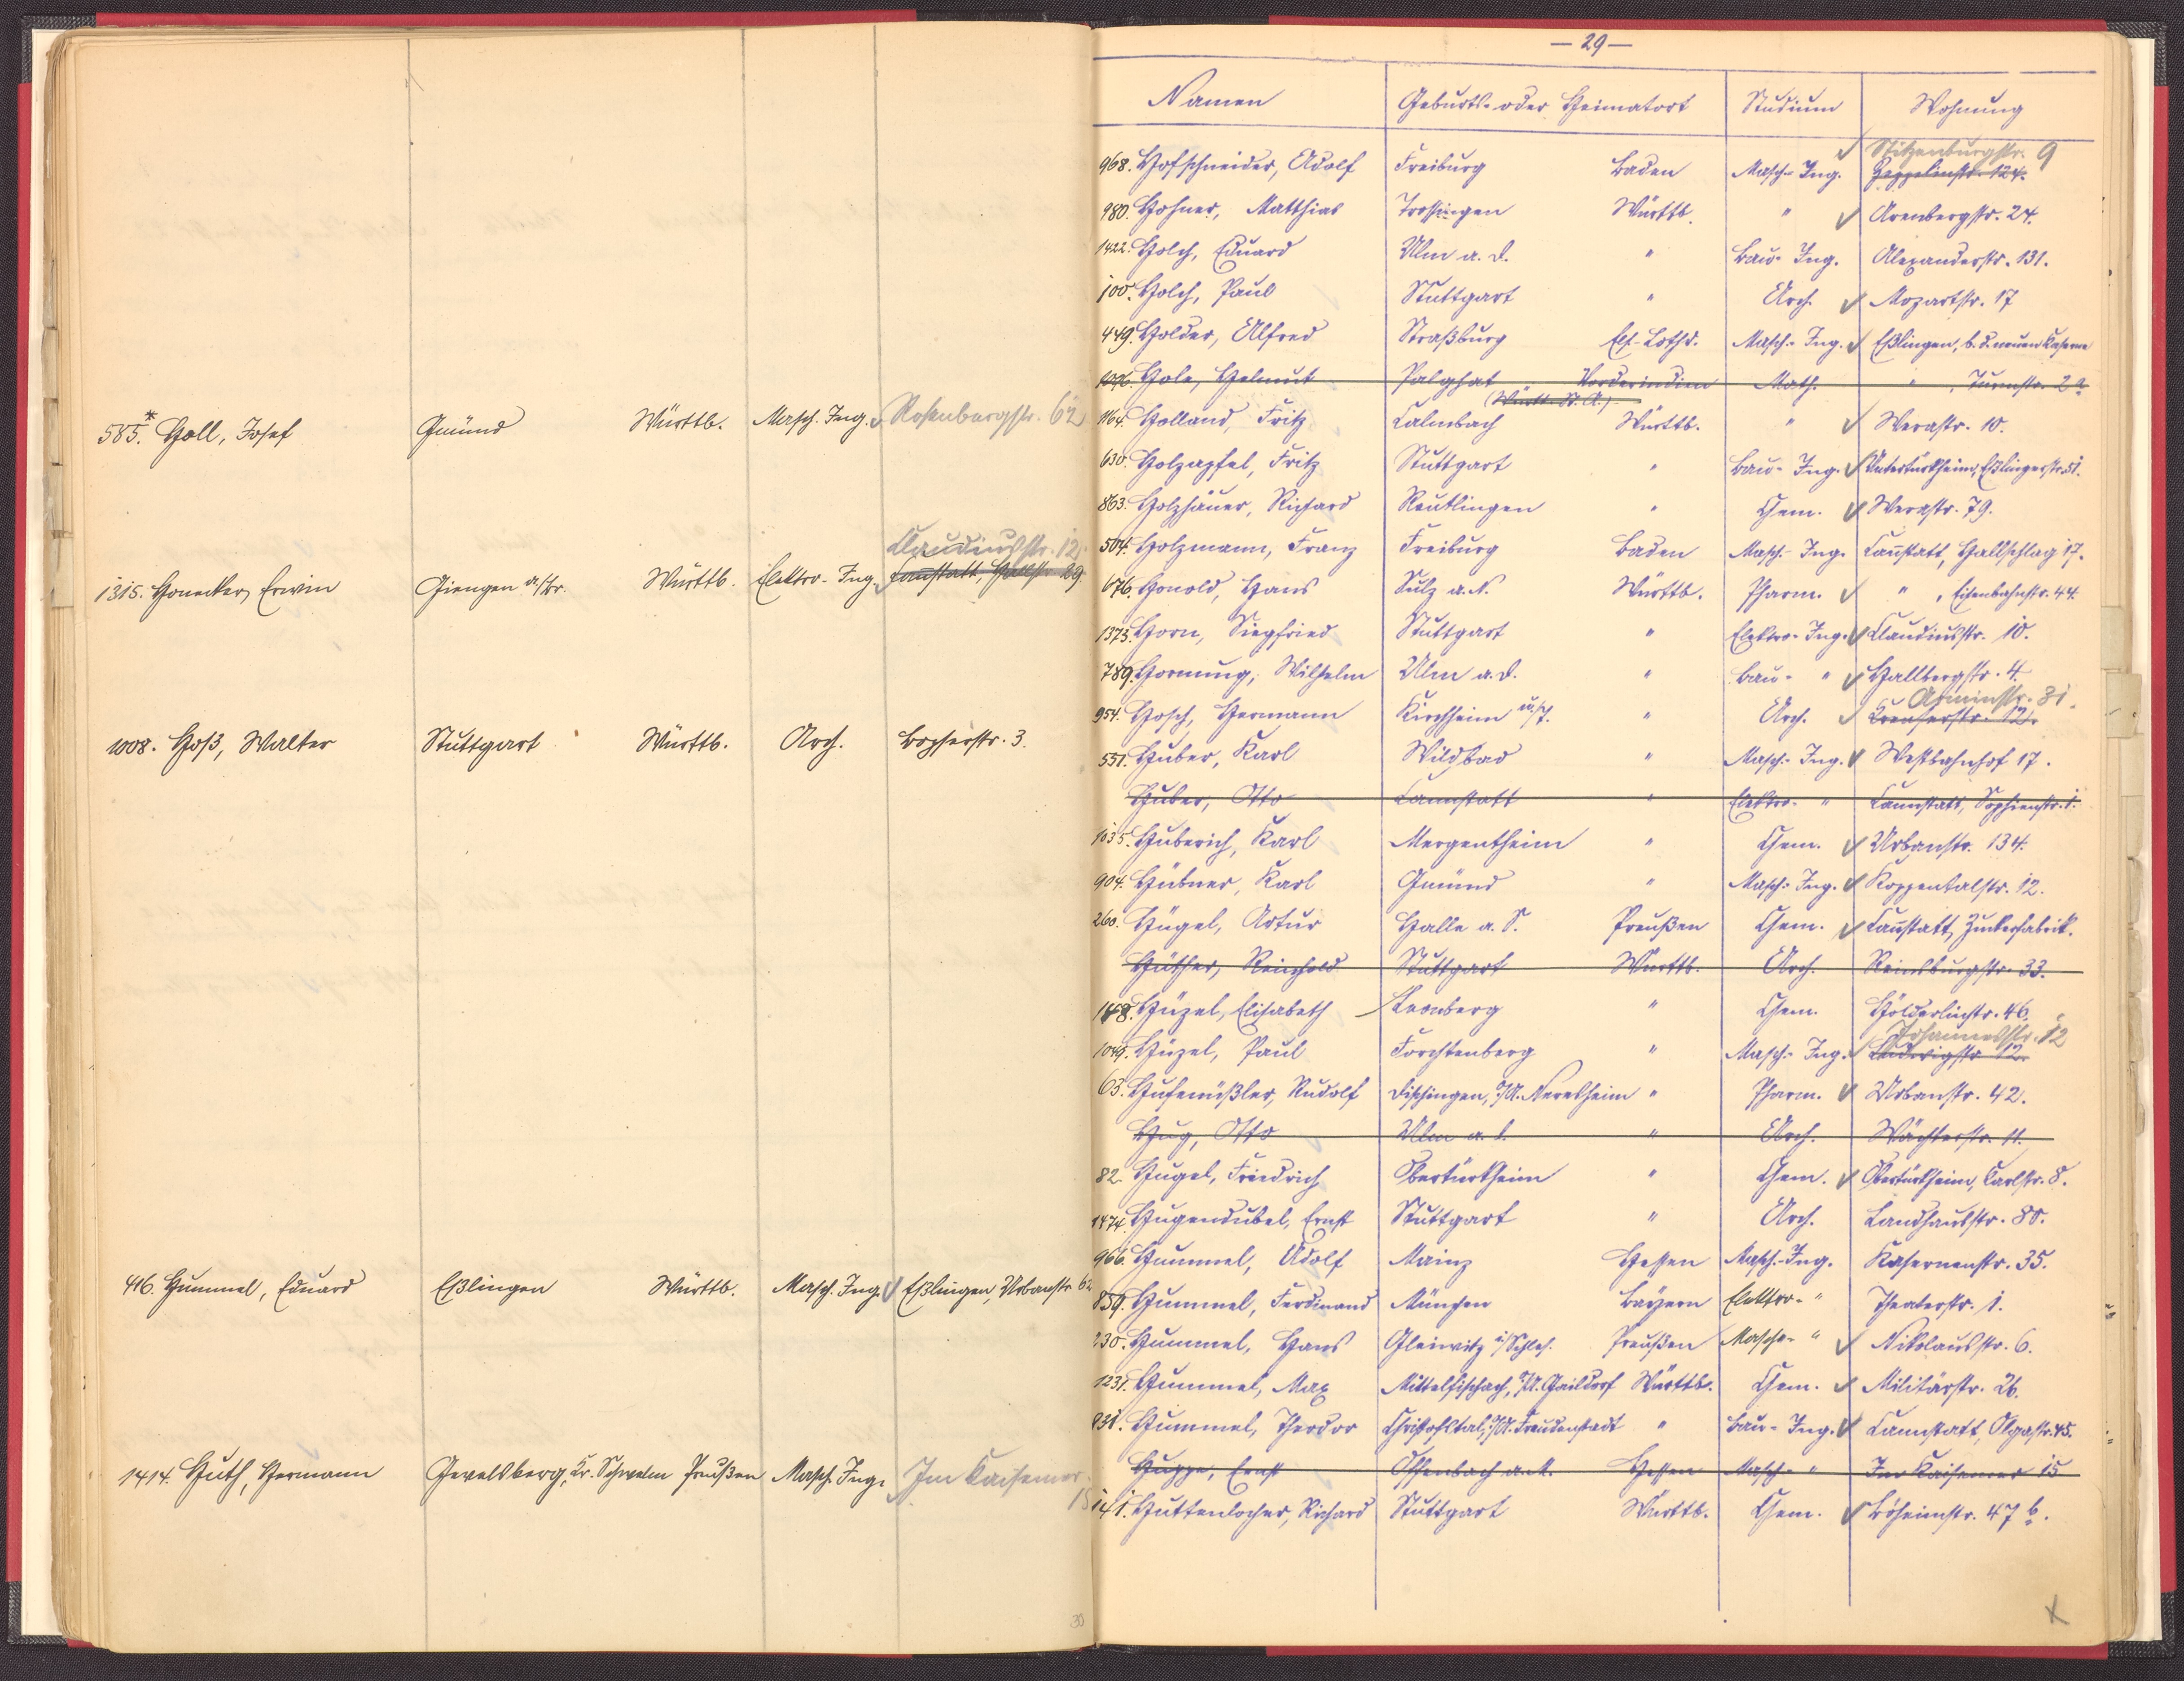 585.* Holl, Josef Gmünd Württb. Masch. Ing. Rosenbergstr. 62
Claudiusstr. 12.
1315. Honecker, Erwin Giengen a/Br. Württb. Elektro-Ing. Cannstatt, Hallstr. 29.
1008. Hoß, Walter Stuttgart Württb. Arch. Bopserstr. 3.
416. Hummel, Eduard Eßlingen Württb. Masch. Ing. Eßlingen, Urbanstr. 62
1414. Huth, Hermann Gevelsberg, Kr. Schwelm Preußen Masch. Ing. Im Kaisemer
15
30
— 29 —
Namen Geburts- oder Heimatort Studium Wohnung
Stitzenburgstr. 9
968. Hofschneider, Adolf Freiburg Baden Masch.-Ing. Zeppelinstr. 124.
980. Hohner, Matthias Trossingen Württb. " Arenbergstr. 24.
1422. Holch, Eduard Ulm a. D. " Bau-Ing. Alexanderstr. 131.
100. Holch, Paul Stuttgart " Arch. Mozartstr. 17
449. Holder, Alfred Straßburg Els-Lothr. Masch.-Ing. Eßlingen, b. d. neuen Kaserne
1096. Hole, Helmut Palghat Vorderindien Math. " , Turmstr. 2a
(Württ. St. A.)
1164. Holland, Fritz Calmbach Württb. " Werastr. 10.
630. Holzapfel, Fritz Stuttgart " Bau-Ing. Untertürkheim, Eßlingerstr. 51.
863. Holzhäuer, Richard Reutlingen " Chem. Werastr. 79.
504. Holzmann, Franz Freiburg Baden Masch.-Ing. Cannstatt, Hallschlag 17.
676. Honold, Hans Sulz a. N. Württb. Pharm. " , Eisenbahnstr. 44.
1373. Horn, Siegfried Stuttgart " Elektro-Ing. Claudiusstr. 10.
789. Hornung, Wilhelm Ulm a. D. " Bau- " Hallbergstr. 4.
Arminstr. 31.
954. Hosch, Hermann Kirchheim u/T. " Arch. Kreuserstr. 12.
551. Huber, Karl Wildbad " Masch.-Ing. Westbahnhof 17.
Huber, Otto Cannstatt " Elektro- " Cannstatt, Sophienstr. 1.
1035. Huberich, Karl Mergentheim " Chem. Urbanstr. 134.
904. Hübner, Karl Gmünd " Masch.-Ing. Koppentalstr. 12.
260. Hügel, Artur Halle a. S. Preußen Chem. Cannstatt, Zuckerfabrik.
Hüther, Reinhold Stuttgart Württb. Arch. Reinsburgstr. 33.
148. Hüzel, Elisabeth Leonberg " Chem. Hölderlinstr. 46.
Johannesstr. 12
1049. Hüzel, Paul Forchtenberg " Masch.-Ing. Ludwigstr. 12.
63. Hufnüßler, Rudolf Dischingen, O/A. Neresheim " Pharm. Urbanstr. 42.
Hug, Otto Ulm a. D. " Arch. Wächterstr. 11.
82. Hugel, Friedrich Obertürkheim " Chem. Obertürkheim, Carlstr. 8.
1474. Hugendubel, Ernst Stuttgart " Arch. Landhausstr. 80.
966. Hummel, Adolf Mainz Hessen Masch.-Ing. Kasernenstr. 35.
859. Hummel, Ferdinand München Bayern Elektro- " Theaterstr. 1.
230. Hummel, Hans Gleiwitz i/Schles. Preußen Masch.- " Nikolausstr. 6.
1231. Hummel, Max Mittelfischach, O/A. Gaildorf Württb. Chem. Militärstr. 26.
831. Hummel, Theodor Christofstal, O/A. Freudenstadt " Bau-Ing. Cannstatt, Olgastr. 45.
Huppe, Ernst Offenbach a. M. Hessen Masch.- " Im Kaisemer 15
141. Huttenlocher, Richard Stuttgart Württb. Chem. Böheimstr. 47 b.
X